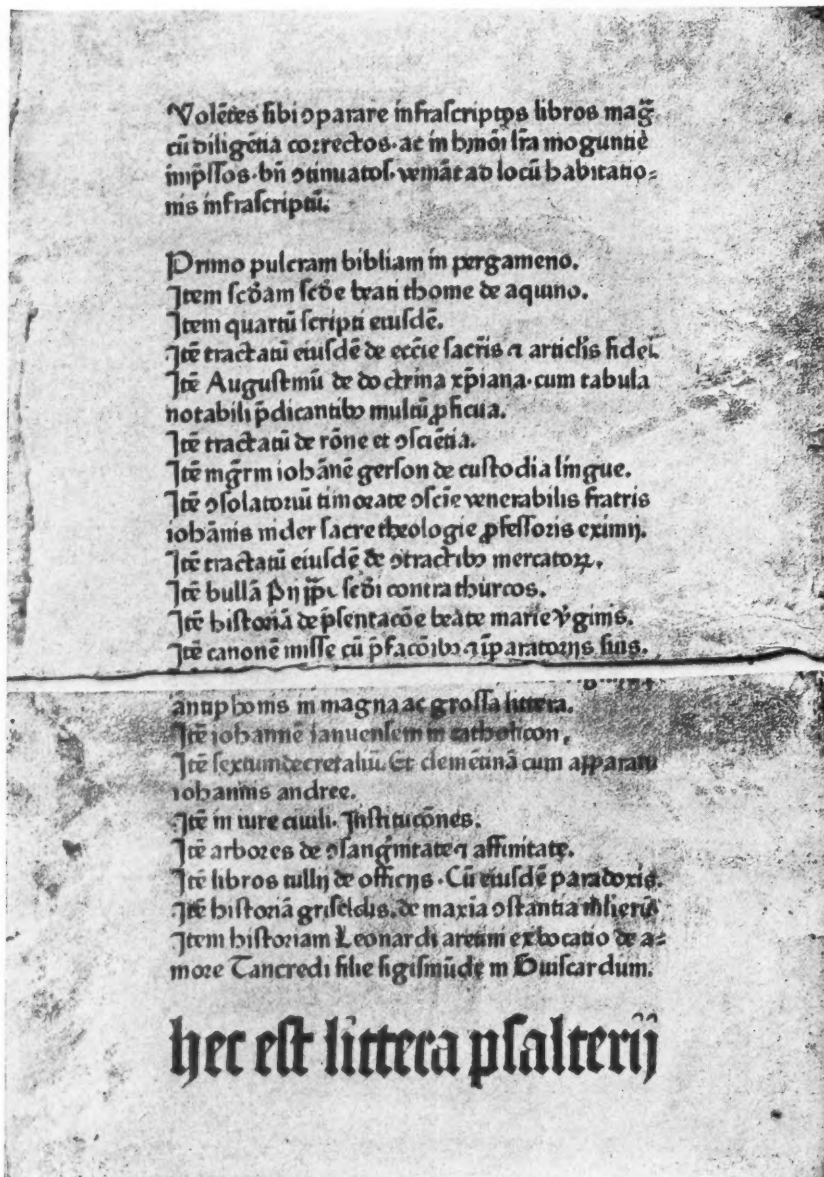 Volētes sibi ꝯparare infrascriptos libros mag̅
cū diligētia correctos·ac in hmōi lr̄a moguntie
imp̄ssos·bn̄ ꝯtinuatos·veniāt ad locū habitatio⸗
nis infrascriptū.
Primo pulcram bibliam in pergameno.
Item scd̄am scd̄e beati thome de aquino.
Item quartū scripti eiusdē.
Itē tractatū eiusdē de eccīe sacr̄is ⁊ articl̄is fidei.
Itē Augustinū de doctrina xp̄iana·cum tabula
notabili p̄dicantibꝫ multū ꝓficua.
Itē tractatū de rōne et ꝯsciētia.
Itē mg̅rm iohānē gerson de custodia lingue.
Itē ꝯsolatoriū timorate ꝯscīe venerabilis fratris
iohānis nider sacre theologie ꝓfessoris eximij.
Itē tractatū eiusdē de ꝯtractibꝫ mercatoꝝ.
Itē bullā pij pp̄e scd̄i contra thurcos.
Itē historiā de p̄sentacōe beate marie v̄ginis.
Itē canonē misse cū p̄facōibꝫ ⁊ īparatorijs suis.
antiphonis in magna ac grossa littera.
Itē iohannē ianuensem in catholicon.
Itē sextumdecretaliū. Et clemētinā cum apparatu
iohannis andree.
Itē in iure ciuili. Institucōnes.
Itē arbores de ꝯsangn̄itate ⁊ affinitate.
Itē libros tullij de officijs·Cū eiusdē paradoxis.
Itē historiā griseldis. de maxīa ꝯstantia ml̄ierū
Item historiam Leonardi aretini ex bocatio de a⸗
more Tancredi filie sigismūde in Guiscardum.
hec est littera psalterij